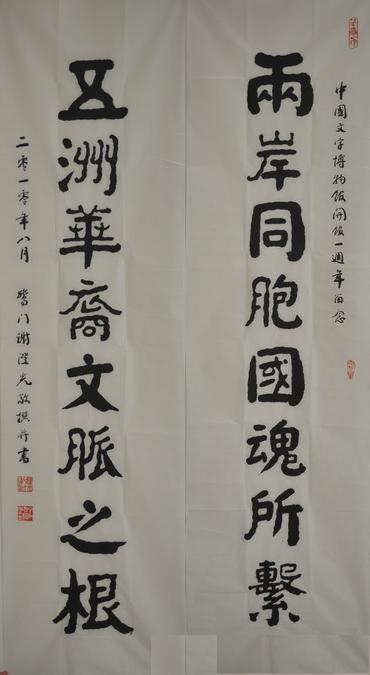 中國文字博物館開館一週年留念
兩岸同胞國魂所繫
五洲華裔文脈之根
二零一零年八月 鷺門謝澄光敬撰并書